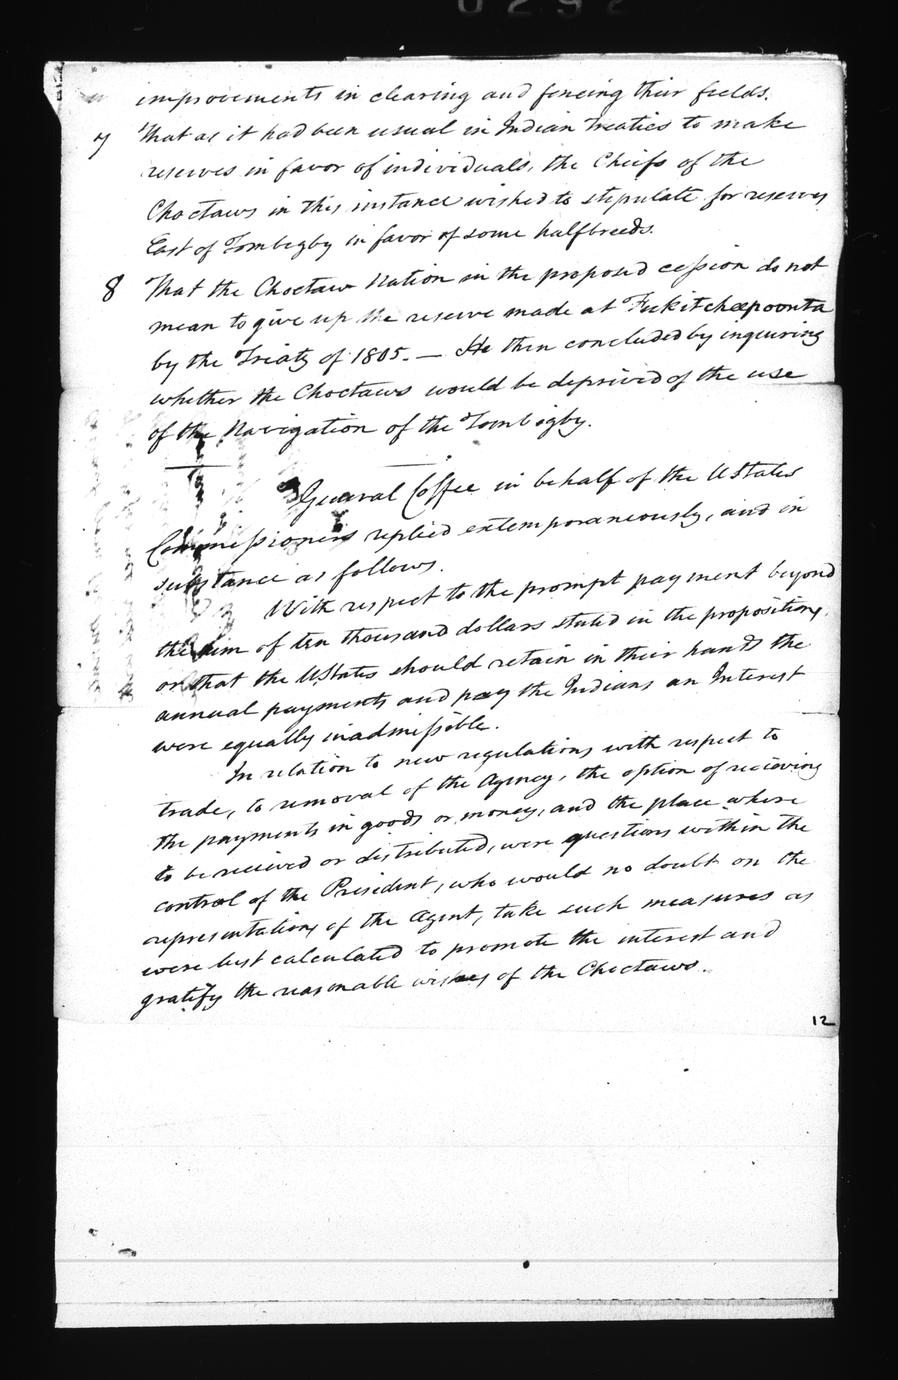 0292
improvements in clearing and fencing their fields.
7 That as it had been usual in Indian Treaties to make
reserves in favor of individuals, the Cheifs of the
Choctaws in this instance wished to stipulate for reserves
East of Tombigby in favor of some halfbreeds.
8 That the Choctaw Nation in the proposed cession do not
mean to give up the reserve made at Fukitcheepoonta
by the Treaty of 1805. — He then concluded by inquiring
whether the Choctaws would be deprived of the use
of the Navigation of the Tombigby.
General Coffee in behalf of the UStates
Commissioners replied extemporaneously, and in
substance as follows.
With respect to the prompt payment beyond
the sum of ten thousand dollars stated in the propositions,
or that the UStates should retain in their hands the
annual payments and pay the Indians an Interest
were equally inadmissible.
In relation to new regulations with respect to
trade, to removal of the Agency, the option of recieving
the payments in goods or money, and the place where
to be recieved or distributed, were questions within the
control of the President, who would no doubt on the
representations of the Agent, take such measures as
were best calculated to promote the interest and
gratify the reasonable wishes of the Choctaws.
12